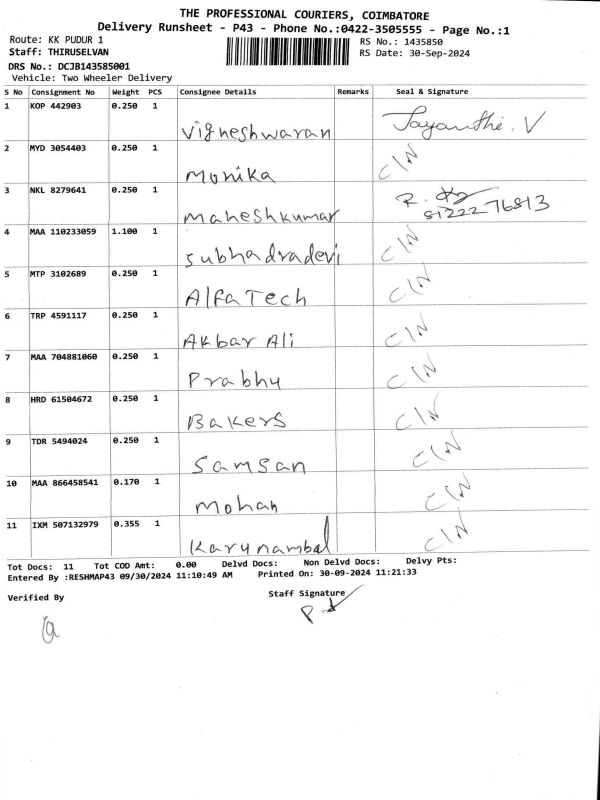 THE PROFESSIONAL COURIERS, COIMBATORE
Delivery Runsheet - P43 - Phone No.:0422-3505555 - Page No.:1
Route: KK PUDUR 1 RS No.: 1435850
Staff: THIRUSELVAN RS Date: 30-Sep-2024
DRS No.: DCJB143585001
Vehicle: Two Wheeler Delivery
S No Consignment No Weight PCS Consignee Details Remarks Seal & Signature
1 KOP 442903 0.250 1 Vigneshwaran Jayanthi. V
2 MYD 3054403 0.250 1 Monika C/N
3 NKL 8279641 0.250 1 Maheshkumar R. 8122276813
4 MAA 110233059 1.100 1 Subhadradevi C/N
5 MTP 3102689 0.250 1 Alfa Tech C/N
6 TRP 4591117 0.250 1 Akbar Ali C/N
7 MAA 704881060 0.250 1 Prabhu C/N
8 HRD 61504672 0.250 1 Bakers C/N
9 TDR 5494024 0.250 1 Samsan C/N
10 MAA 866458541 0.170 1 Mohan C/N
11 IXM 507132979 0.355 1 Karunambal C/N
Tot Docs: 11 Tot COD Amt: 0.00 Delvd Docs: Non Delvd Docs: Delvy Pts:
Entered By :RESHMAP43 09/30/2024 11:10:49 AM Printed On: 30-09-2024 11:21:33
Verified By Staff Signature